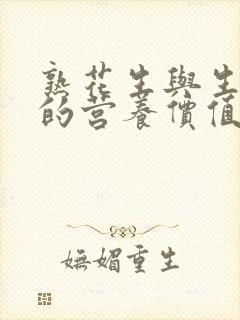 熟花生與生
的营養價值
嫵媚重生